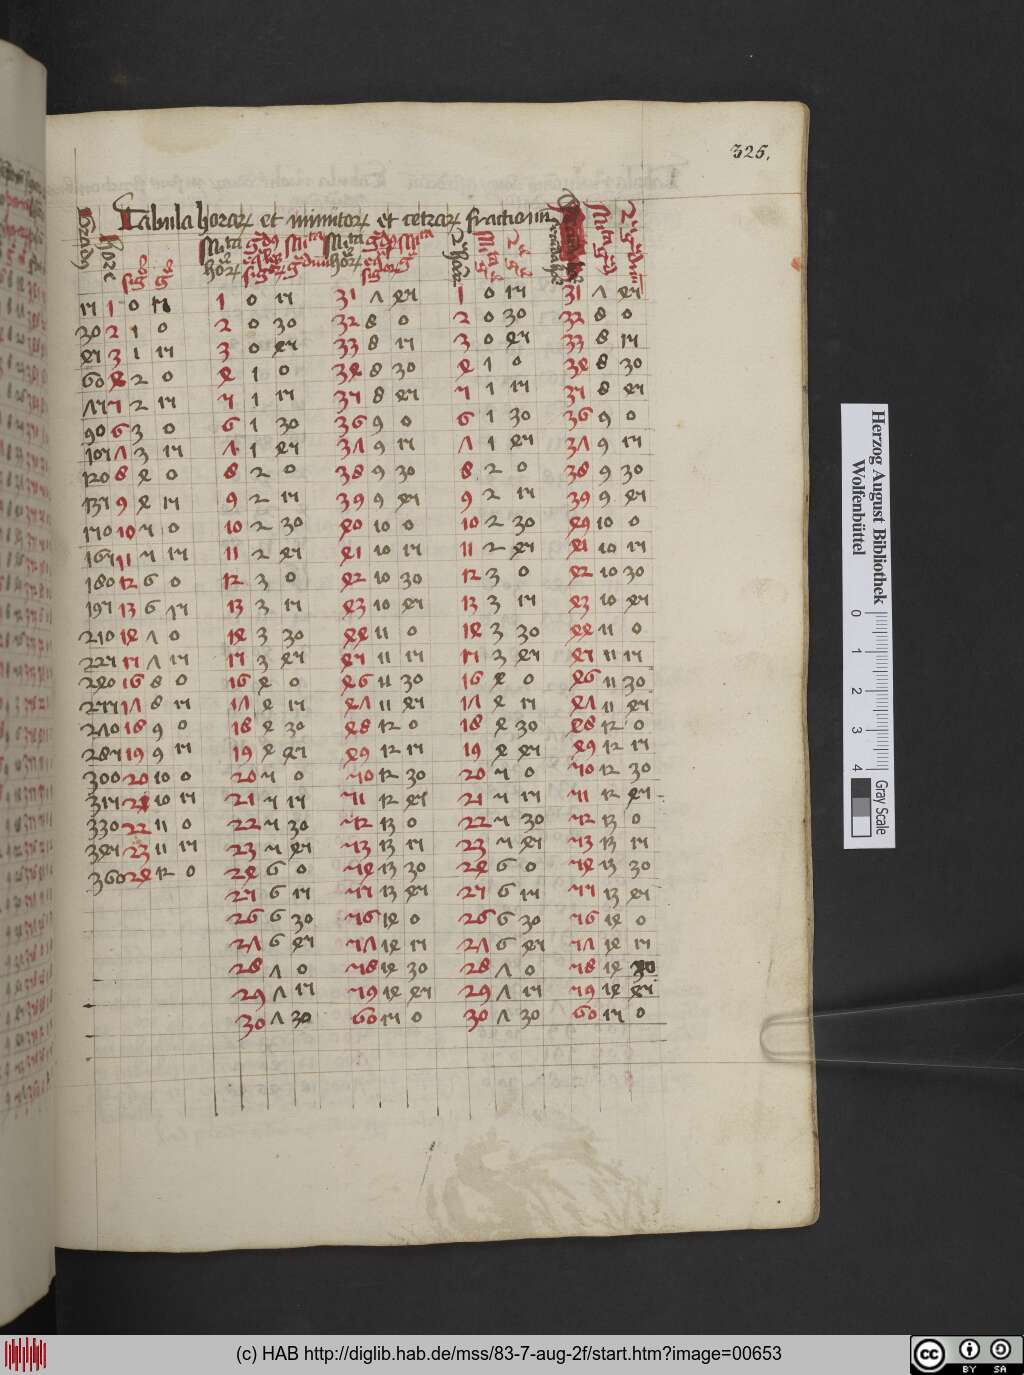 325.
Tabula horaꝝ et minutoꝝ et cetraꝝ fractionū
Gradꝰ Hore
15 1 0 15 1 0 15 31 7 45 1 0 15 31 7 45
30 2 1 0 2 0 30 32 8 0 2 0 30 32 8 0
45 3 1 15 3 0 45 33 8 15 3 0 45 33 8 15
60 4 2 0 4 1 0 34 8 30 4 1 0 34 8 30
75 5 2 15 5 1 15 35 8 45 5 1 15 35 8 45
90 6 3 0 6 1 30 36 9 0 6 1 30 36 9 0
105 7 3 15 7 1 45 37 9 15 7 1 45 37 9 15
120 8 4 0 8 2 0 38 9 30 8 2 0 38 9 30
135 9 4 15 9 2 15 39 9 45 9 2 15 39 9 45
150 10 5 0 10 2 30 40 10 0 10 2 30 49 10 0
165 11 5 15 11 2 45 41 10 15 11 2 45 41 10 15
180 12 6 0 12 3 0 42 10 30 12 3 0 42 10 30
195 13 6 15 13 3 15 43 10 45 13 3 15 43 10 45
210 14 7 0 14 3 30 44 11 0 14 3 30 44 11 0
225 15 7 15 15 3 45 45 11 15 15 3 45 45 11 15
240 16 8 0 16 4 0 46 11 30 16 4 0 46 11 30
255 17 8 15 17 4 15 47 11 45 17 4 15 47 11 45
270 18 9 0 18 4 30 48 12 0 18 4 30 48 12 0
285 19 9 15 19 4 45 49 12 15 19 4 45 49 12 15
300 20 10 0 20 5 0 50 12 30 20 5 0 50 12 30
315 21 10 15 21 5 15 51 12 45 21 5 15 51 12 45
330 22 11 0 22 5 30 52 13 0 22 5 30 52 13 0
345 23 11 15 23 5 45 53 13 15 23 5 45 53 13 15
360 24 12 0 24 6 0 54 13 30 24 6 0 54 13 30
25 6 15 55 13 45 25 6 15 55 13 45
26 6 30 56 14 0 26 6 30 56 14 0
27 6 45 57 14 15 27 6 45 57 14 15
28 7 0 58 14 30 28 7 0 58 14 30
29 7 15 59 14 45 29 7 15 59 14 45
30 7 30 60 15 0 30 7 30 60 15 0
Herzog August Bibliothek
Wolfenbüttel
0 1 2 3 4
Gray Scale
(c) HAB http://diglib.hab.de/mss/83-7-aug-2f/start.htm?image=00653
cc BY SA